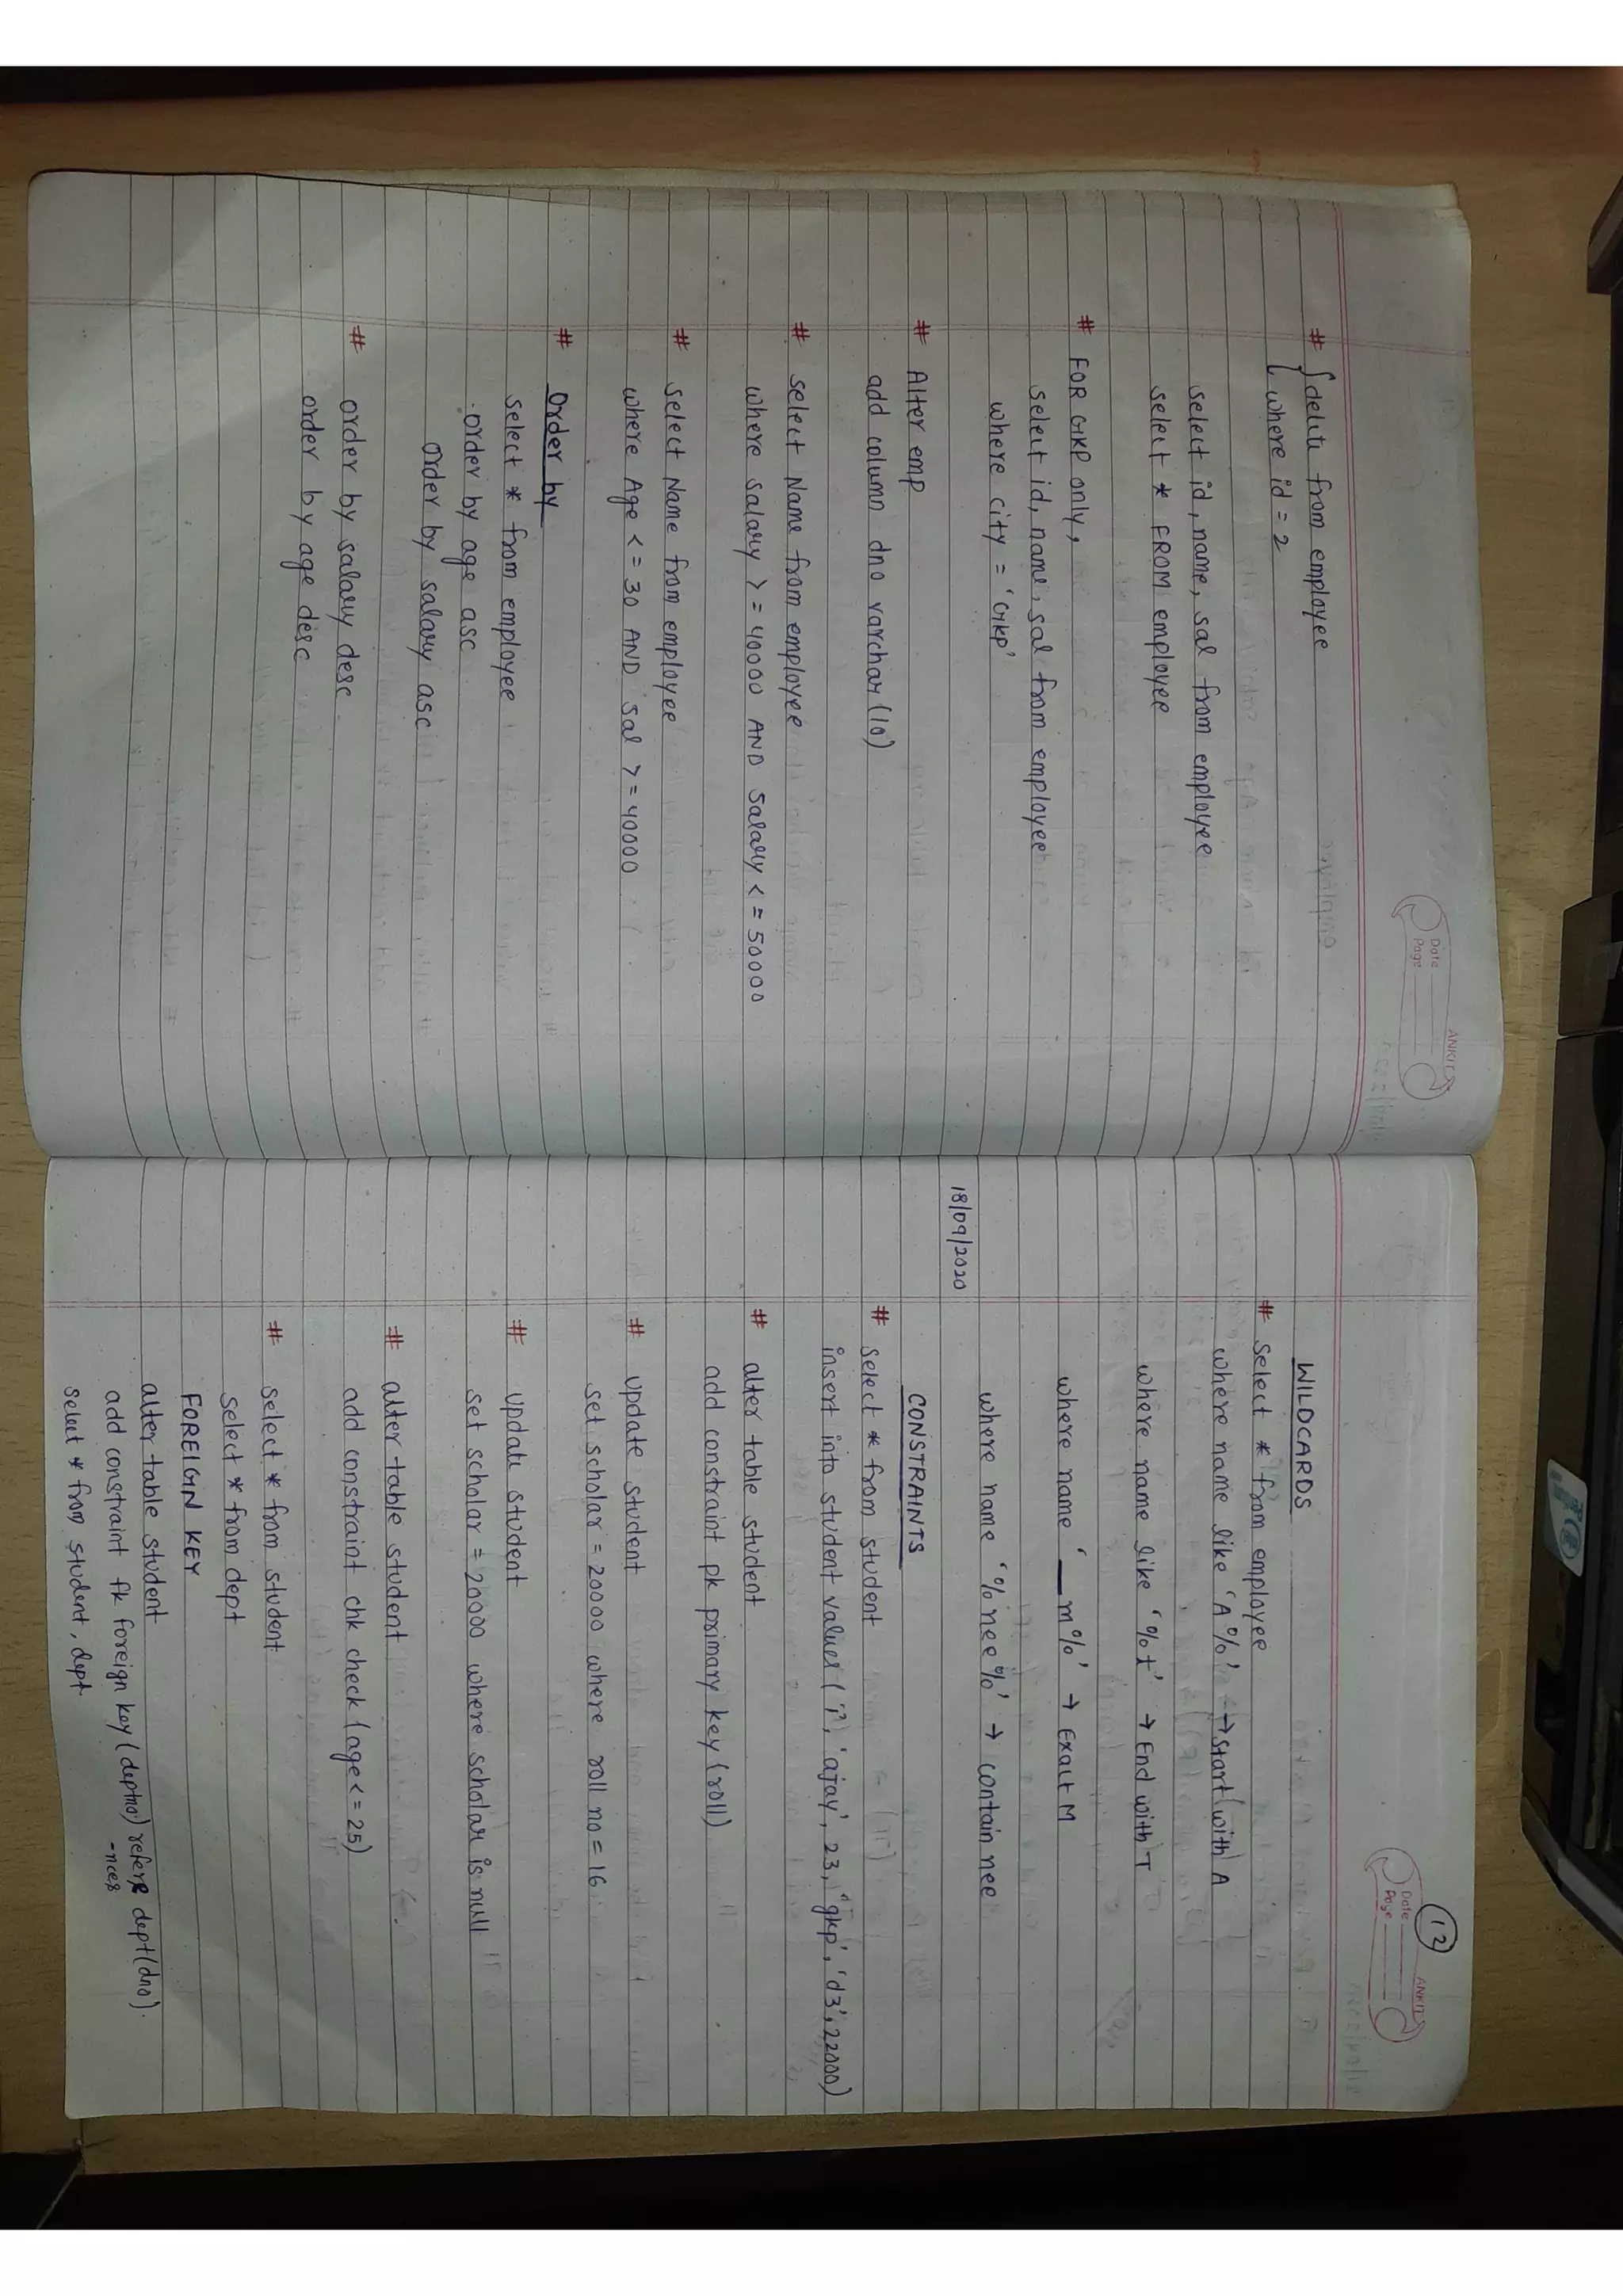 ANKIT
Date
Page
# { delete from employee
where id = 2
select id, name, sal from employee
select * FROM employee
# FOR GKP only,
select id, name, sal from employee
where city = 'GKP'
# Alter emp
add column dno varchar(10)
# select Name from employee
where salary >= 40000 AND salary <= 50000
# select Name from employee
where Age <= 30 AND sal >= 40000
# Order by
select * from employee
order by age asc
order by salary asc
# order by salary desc
order by age desc
12
ANKIT
Date
Page
WILDCARDS
# Select * from employee
where name like 'A%' → start with A
where name like '%t' → End with T
where name '__m%' → Exact M
where name '%nee%' → contain nee
18/09/2020
CONSTRAINTS
# select * from student
insert into student values( , 'ajay', 23, 'gkp', 'd3', 22000)
# alter table student
add constraint pk primary key (roll)
# update student
set scholar = 20000 where roll no = 16
# update student
set scholar = 20000 where scholar is null
# alter table student
add constraint chk check (age <= 25)
# select * from student
select * from dept
FOREIGN KEY
alter table student
add constraint fk foreign key (deptno) refere dept(dno).
-nces
select * from student, dept.